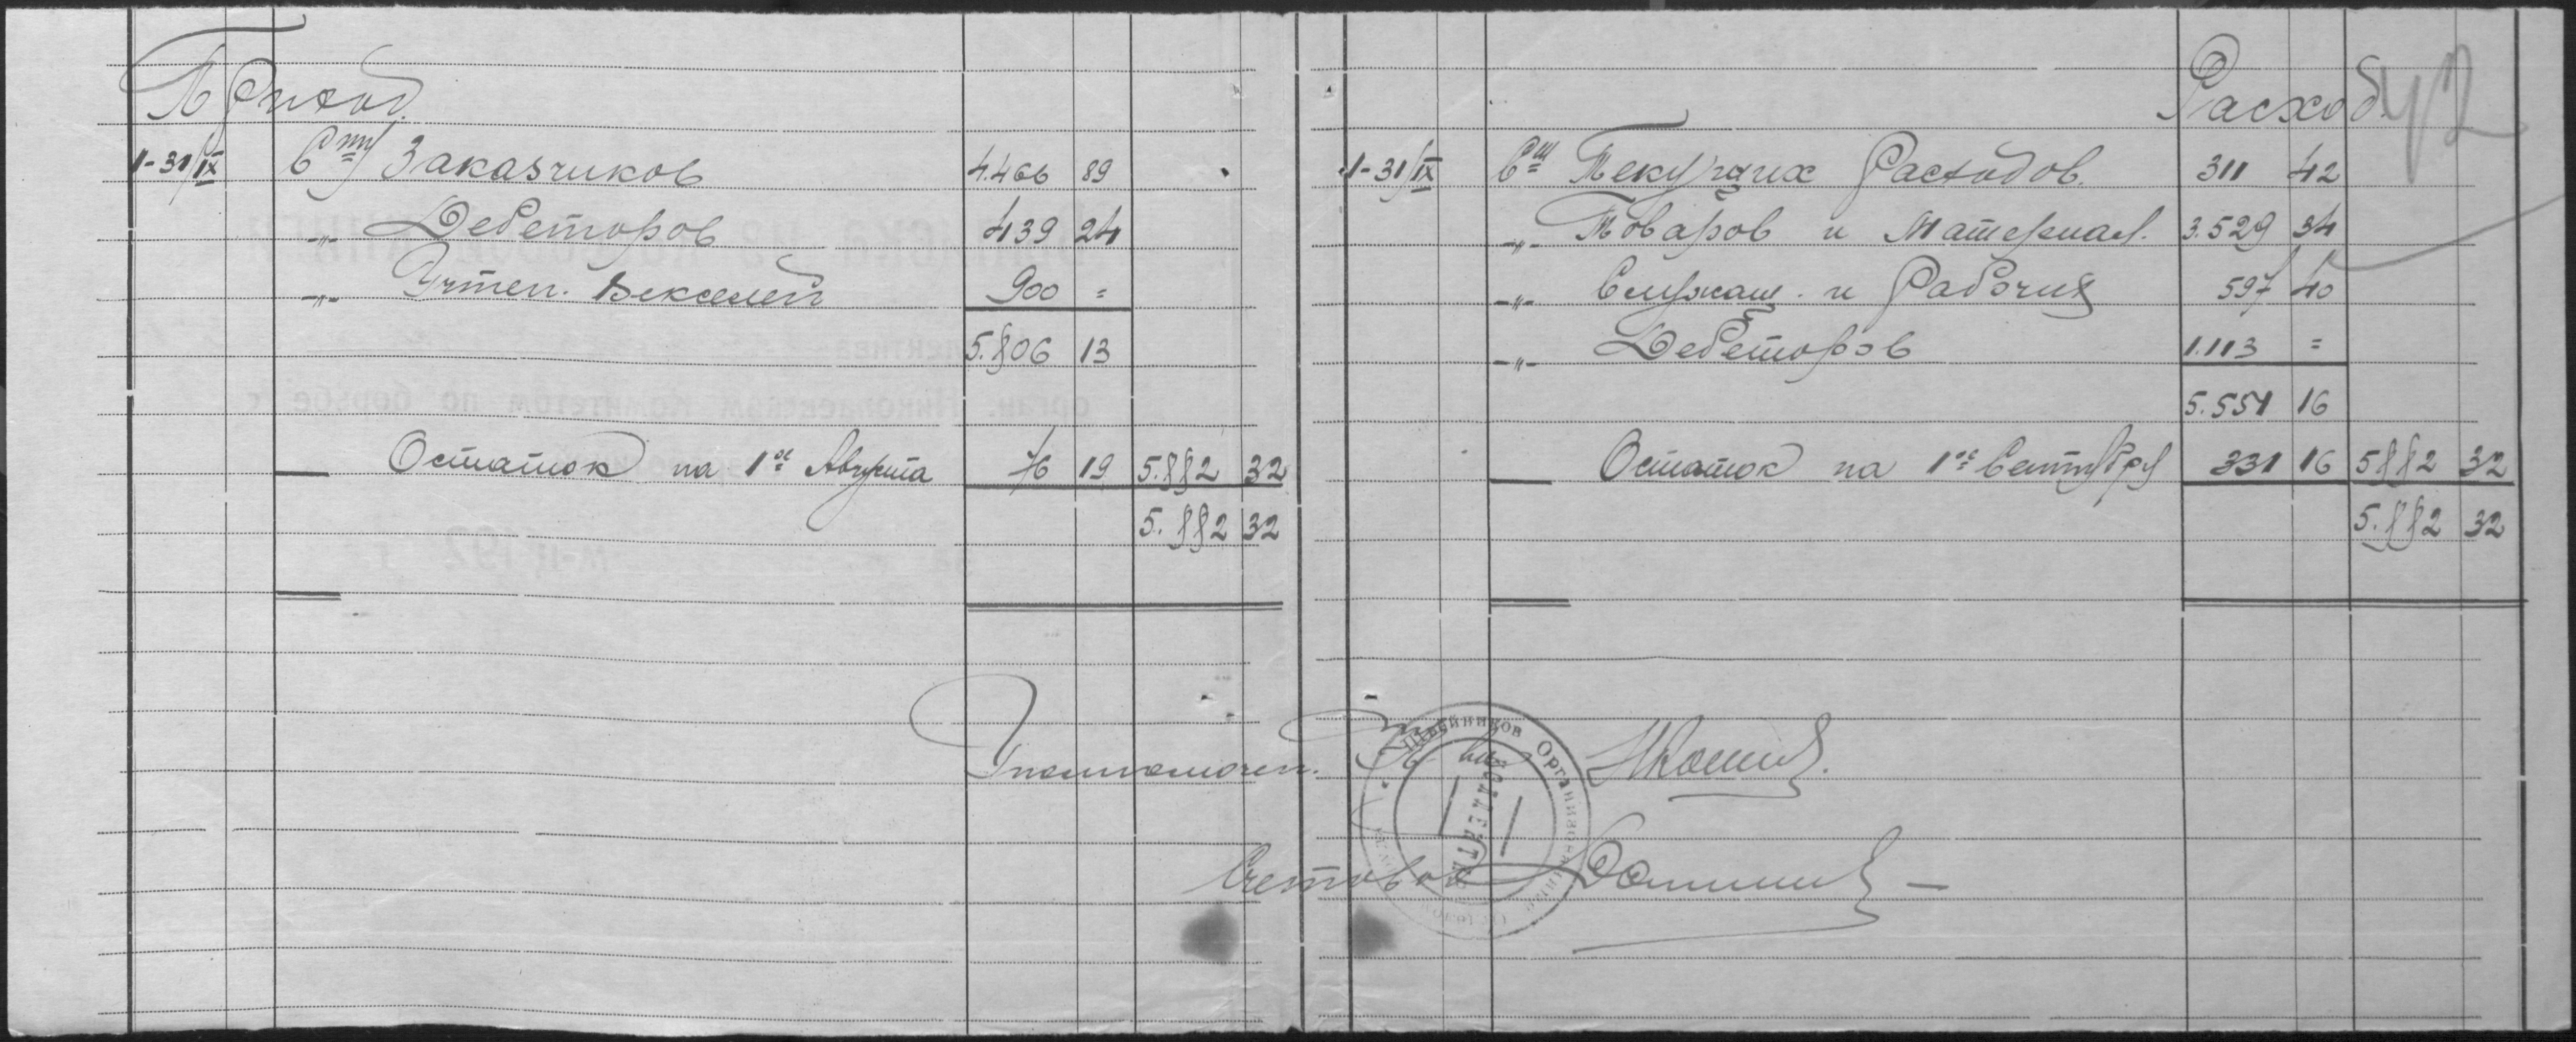 Приход.
1-31/IX Сту Заказчиков 4.466 89
-"- Дебеторов 439 24
-"- Учтен. Векселей 900 =
5.806 13
Остаток на 1ое Августа 76 19 5.882 32
5.882 32
Уполномочен.
Счетовод
Расход.
42
1-31/IX Сту Текущих Расходов. 311 42
-"- Товаров и Материал. 3.529 34
-"- Служащ. и Рабочих 597 40
-"- Дебеторов 1.113 =
5.551 16
Остаток на 1ое Сентября 331 16 5882 32
5.882 32
Швейников Организованный